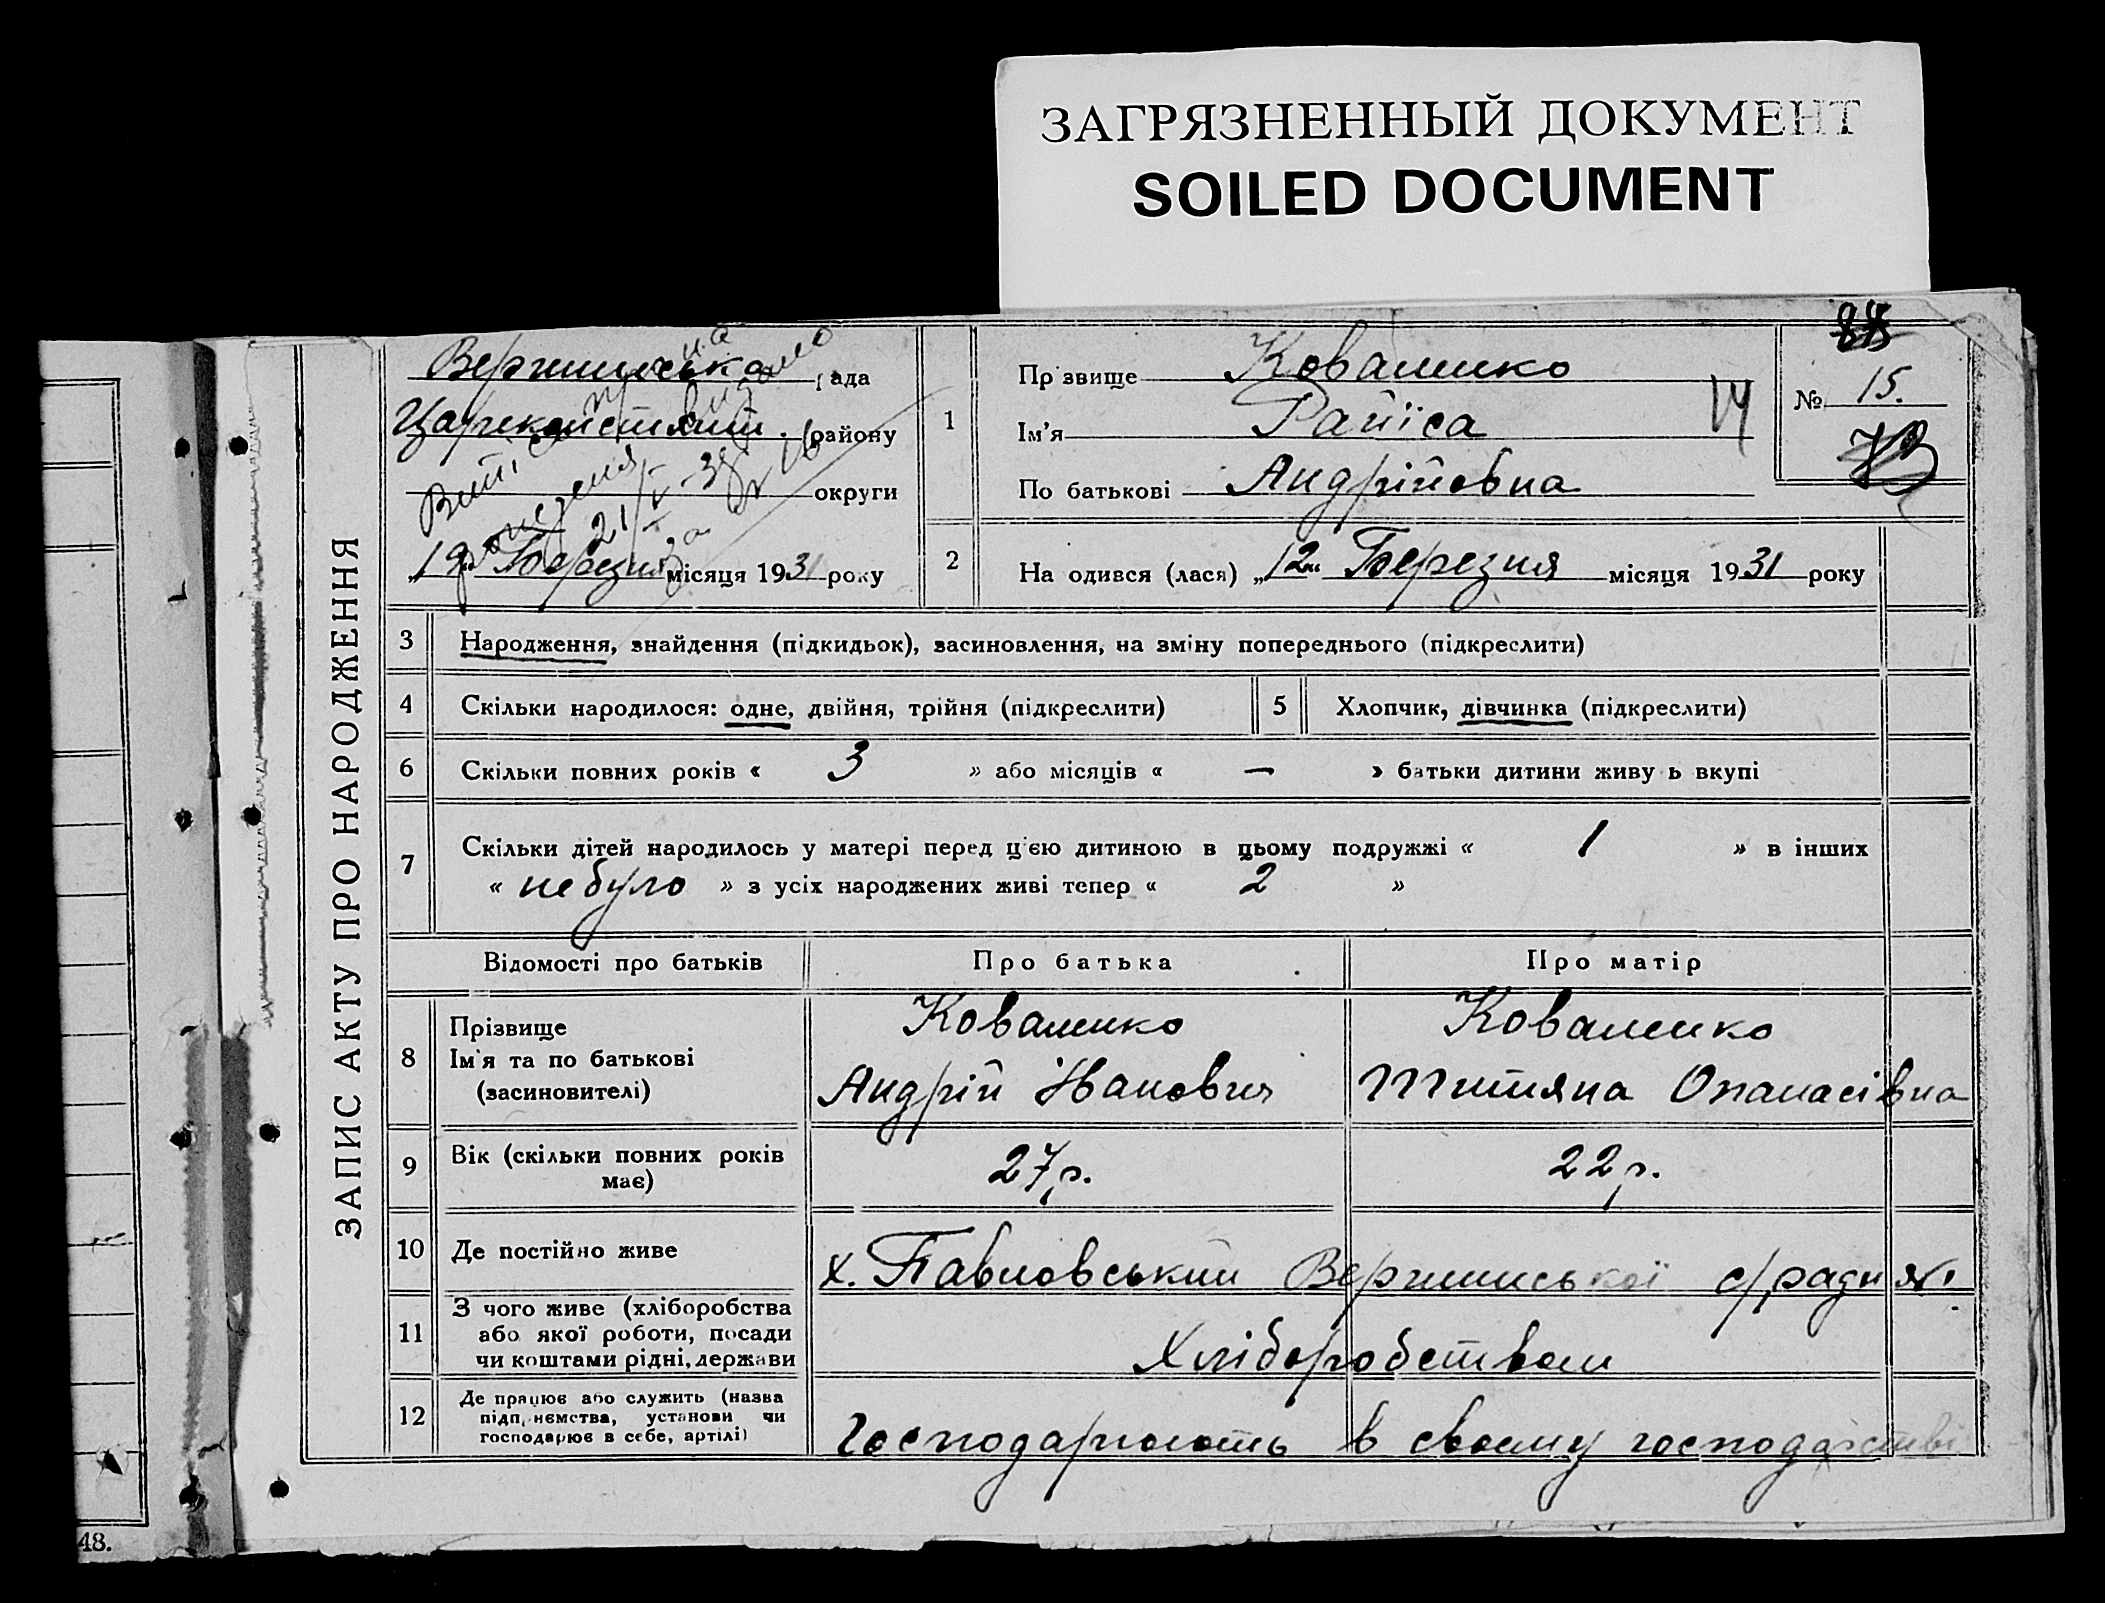 ЗАГРЯЗНЕННЫЙ ДОКУМЕНТ
SOILED DOCUMENT
ЗАПИС АКТУ ПРО НАРОДЖЕННЯ
рада
району
округи
Березня місяця 1931 року
1
Прізвище Коваленко
Ім'я Раїса
По батькові Андрійовна
14
№ 15.
2
На одився (лася) „12" Березня місяця 1931 року
3 Народження, знайдення (підкидьок), засиновлення, на зміну попереднього (підкреслити)
4 Скільки народилося: одне, двійня, трійня (підкреслити)
5 Хлопчик, дівчинка (підкреслити)
6 Скільки повних років « 3 » або місяців « — » батьки дитини живуть вкупі
7 Скільки дітей народилось у матері перед цією дитиною в цьому подружжі « 1 » в інших
« не було » з усіх народжених живі тепер « 2 »
Відомості про батьків Про батька Про матір
8 Прізвище Коваленко Коваленко
Ім'я та по батькові
(засиновителі) Андрій Іванович Титяна Опанасівна
9 Вік (скільки повних років
має) 27 р. 22 р.
10 Де постійно живе х. Павловський с/ради
11 З чого живе (хліборобства
або якої роботи, посади
чи коштами рідні, держави Хліборобством
12 Де працює або служить (назва
підприємства, установи чи
господарює в себе, артілі) Господарюють в своему господарстві
48.